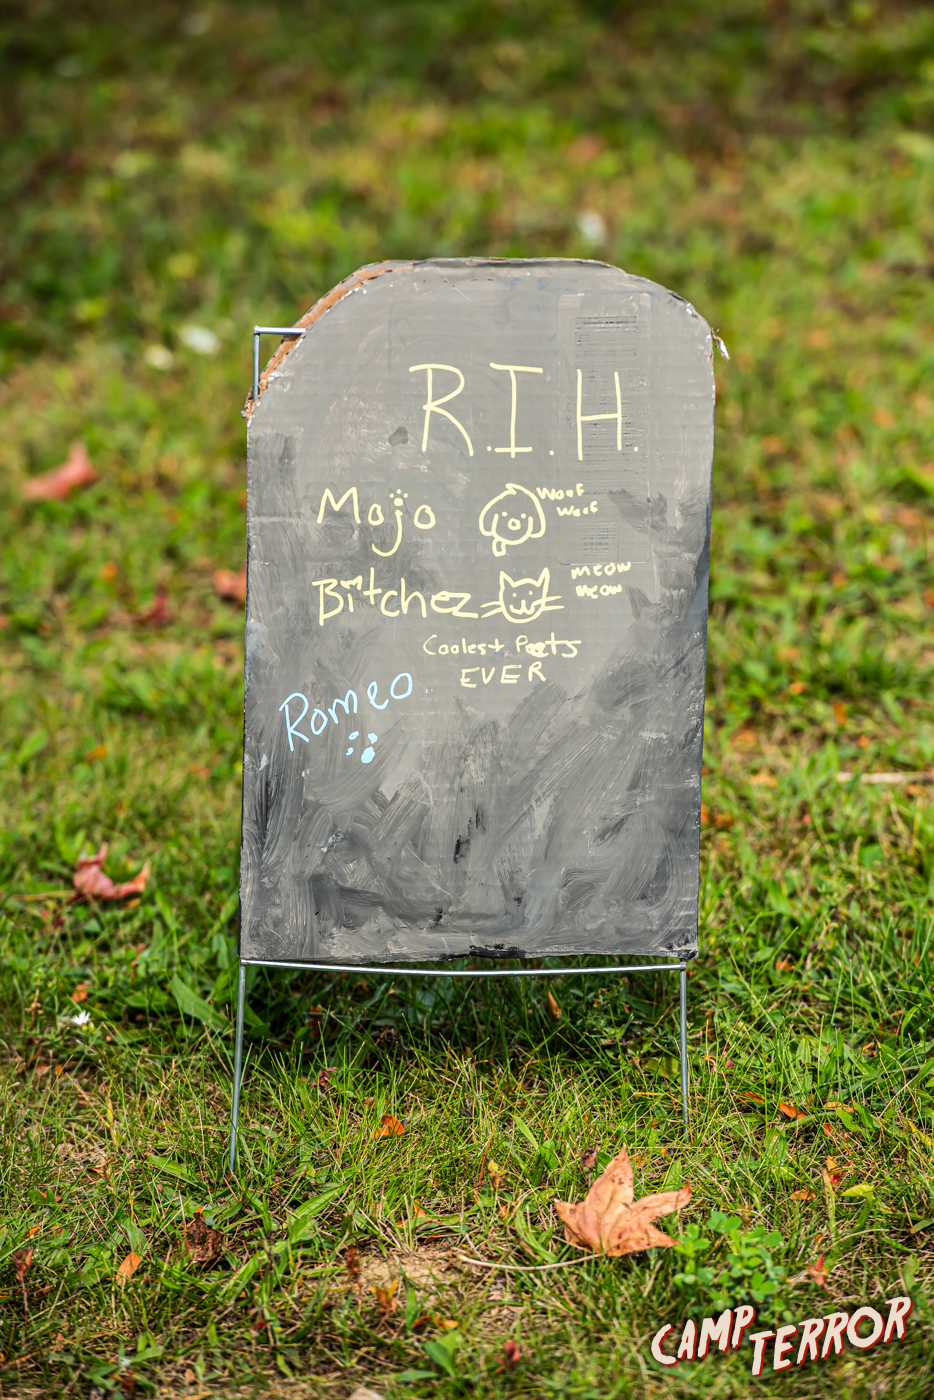 R.I.H.
Mojo
Woof
Woof
Bitchez
meow
meow
Coolest Pets
EVER
Romeo
CAMP TERROR